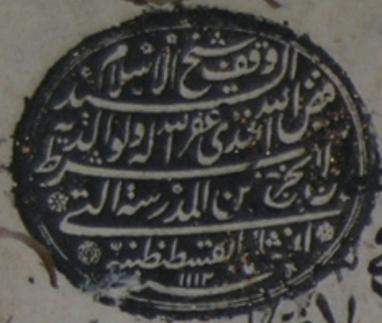 وقف شيخ الاسلام
السيد
فيض الله افندى غفر الله له ولوالديه
بشرط ان لا يخرج من المدرسة التى
انشاها بقسطنطينيه
سنه ١١١٢